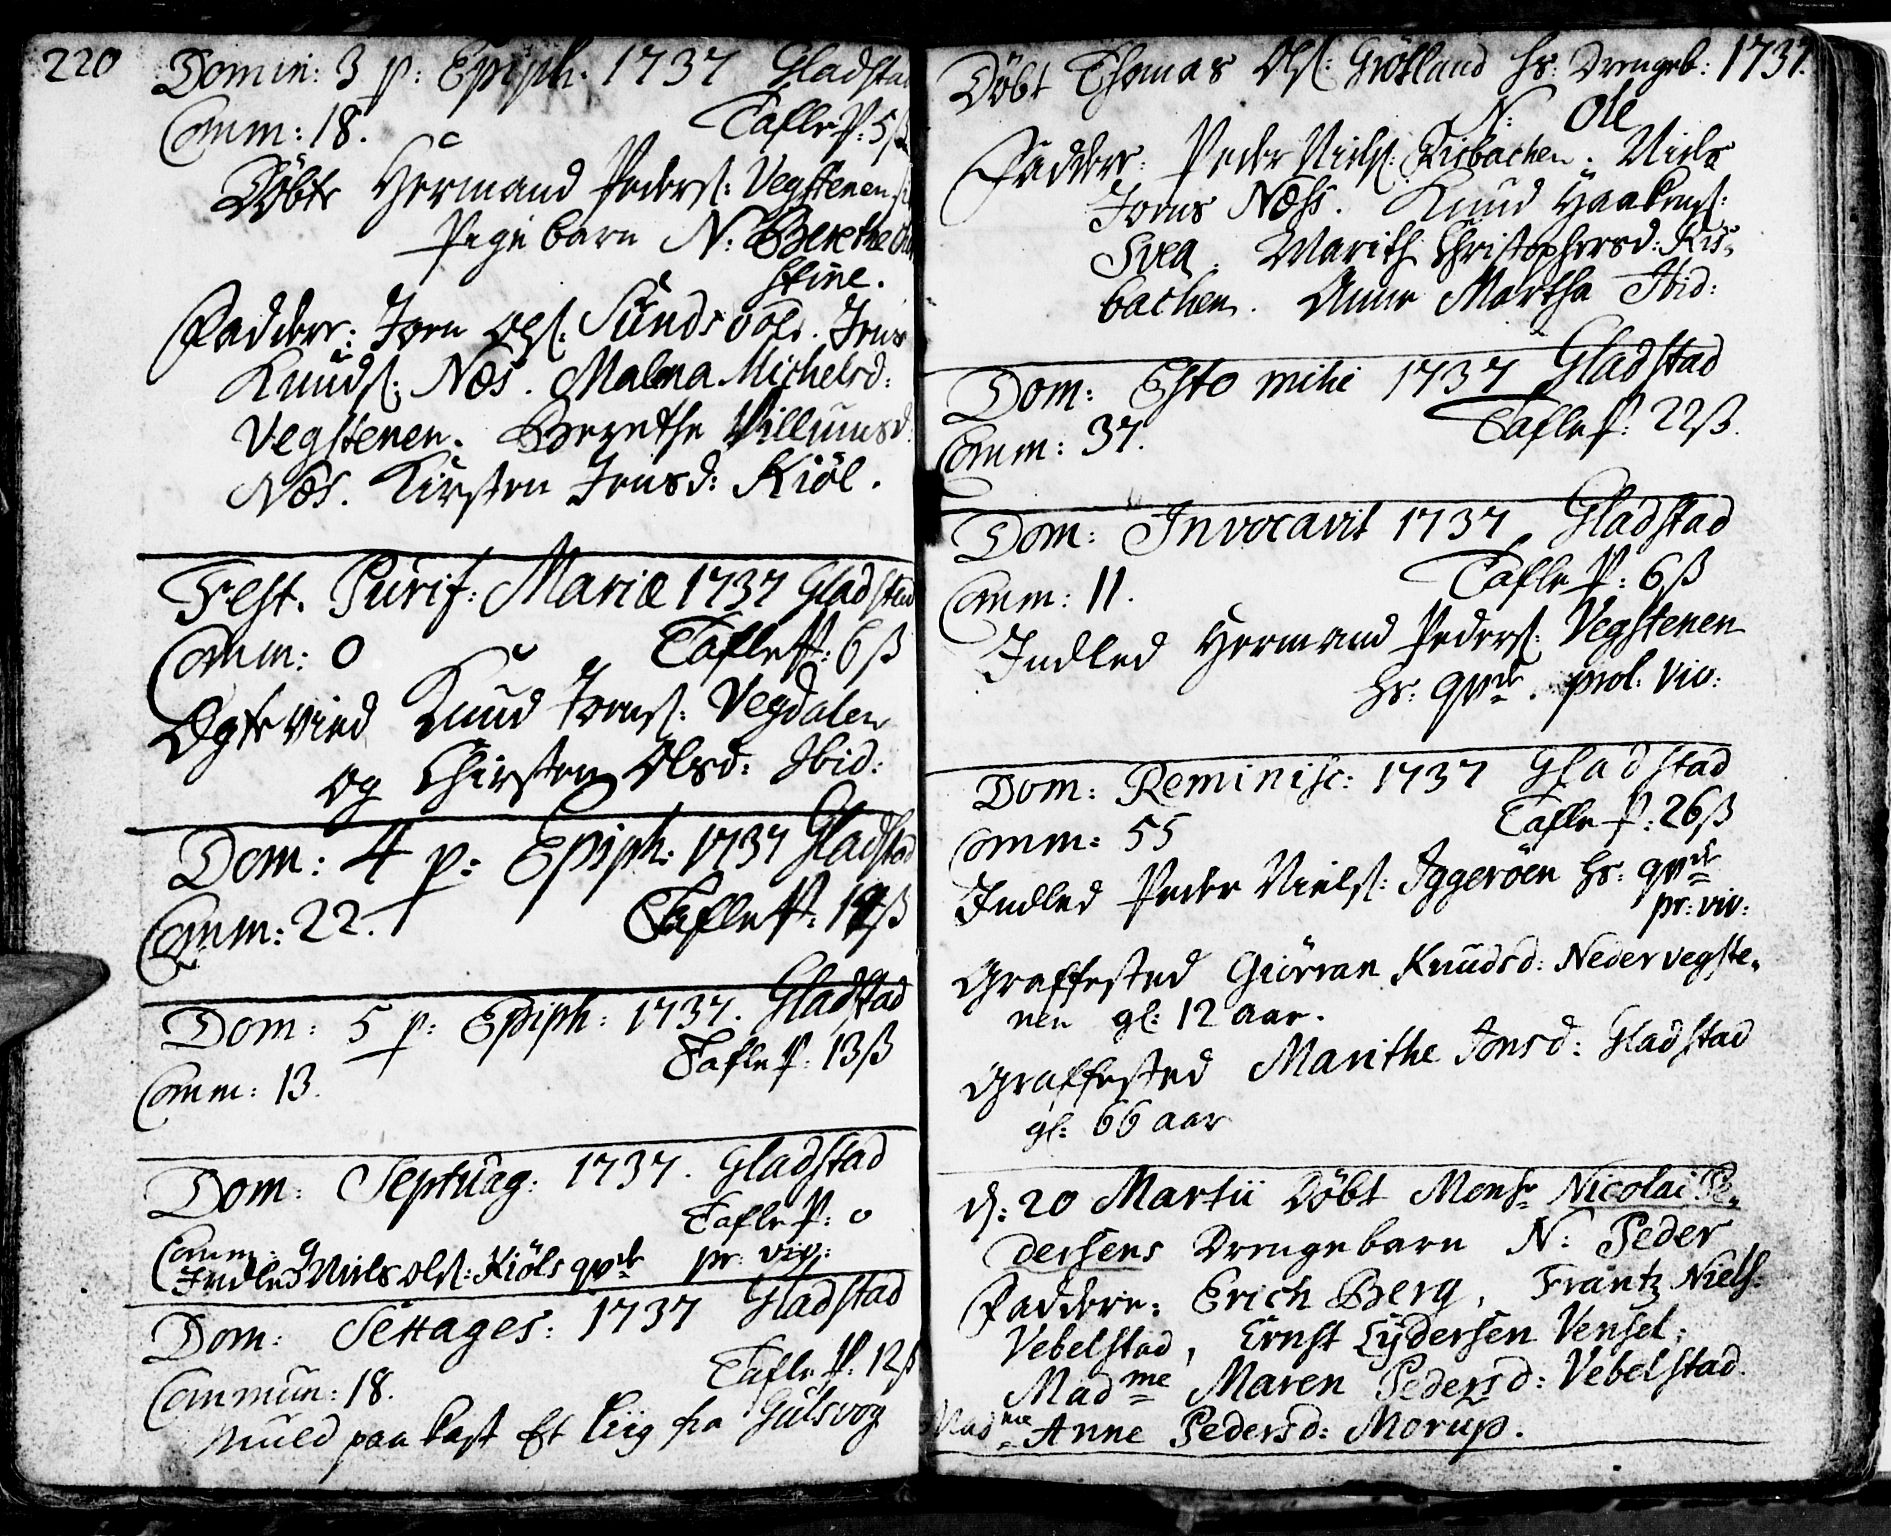 220
Domin: 3 p: Epiph: 1737 Gladstad
Comm: 18. Tafle P: 5 ß
Döbt Hermand Peders: Vegstenen
Pige barn N: Berethe
stine.
Faddere: Joen Ols: Sundsvold. Jens
Knuds: Næs. Malena Michelsd:
Vegstenen. Berethe Villumsd:
Næs. Kirsten Jensd: Kiöl.
Fest. Purif: Mariæ 1737 Gladstad
Comm: 0 Tafle P: 6 ß
Ægte vied Knud Joens: Vegdalen
og Chirsten Olsd: Ibid:
Dom: 4 p: Epiph: 1737 Gladstad
Comm: 22. Tafle P: ß
Dom: 5 p: Epiph: 1737. Gladstad
Comm: 13. Tafle P: 13 ß
Dom: Septuag: 1737. Gladstad
Tafle P: 0
Comm: 9
Indled Niels Ols: Kiöls qvde pr: viv:
Dom: Sexages: 1737 Gladstad
Tafle P: 12 ß
Commun: 18.
Muld paa kast Et Liig fra Gulsvog
Döbt Thomas Ols: Grötland hs: Drengeb: 1737.
N: Ole
Faddere: Peder Niels: Risbachen. Niels
Joens Næss. Knud Haakens:
Svea. Marith Christophersd: Ris-
bachen. Anne Martha Ibid:
Dom: Esto mihi 1737 Gladstad
Comm: 37. Tafle P: 22 ß.
Dom: Invocavit 1737 Gladstad
Comm: 11. Tafle P: 6 ß
Indled Hermand Peders: Vegstenen
hs: qvde. prol. viv:
Dom: Reminisc: 1737 Gladstad
Comm: 55 Tafle P: 26 ß
Indled Peder Niels: Iggeröen hs: qvde
pr: viv:
Graffested Giörran Knudsd: Nedervegste-
nen gl: 12 aar.
Graffested Marithe Jonsd: Gladstad
gl: 66 aar
d: 20 Martii Döbt Monsr Nicolai Pe-
dersens Drengebarn N: Peder
Faddere: Erich Berg, Frantz Niels:
Vebelstad, Ernst Lydersen Vensel;
Madme Maren Pedersd: Vebelstad.
Madme Anne Pedersd: Morup.